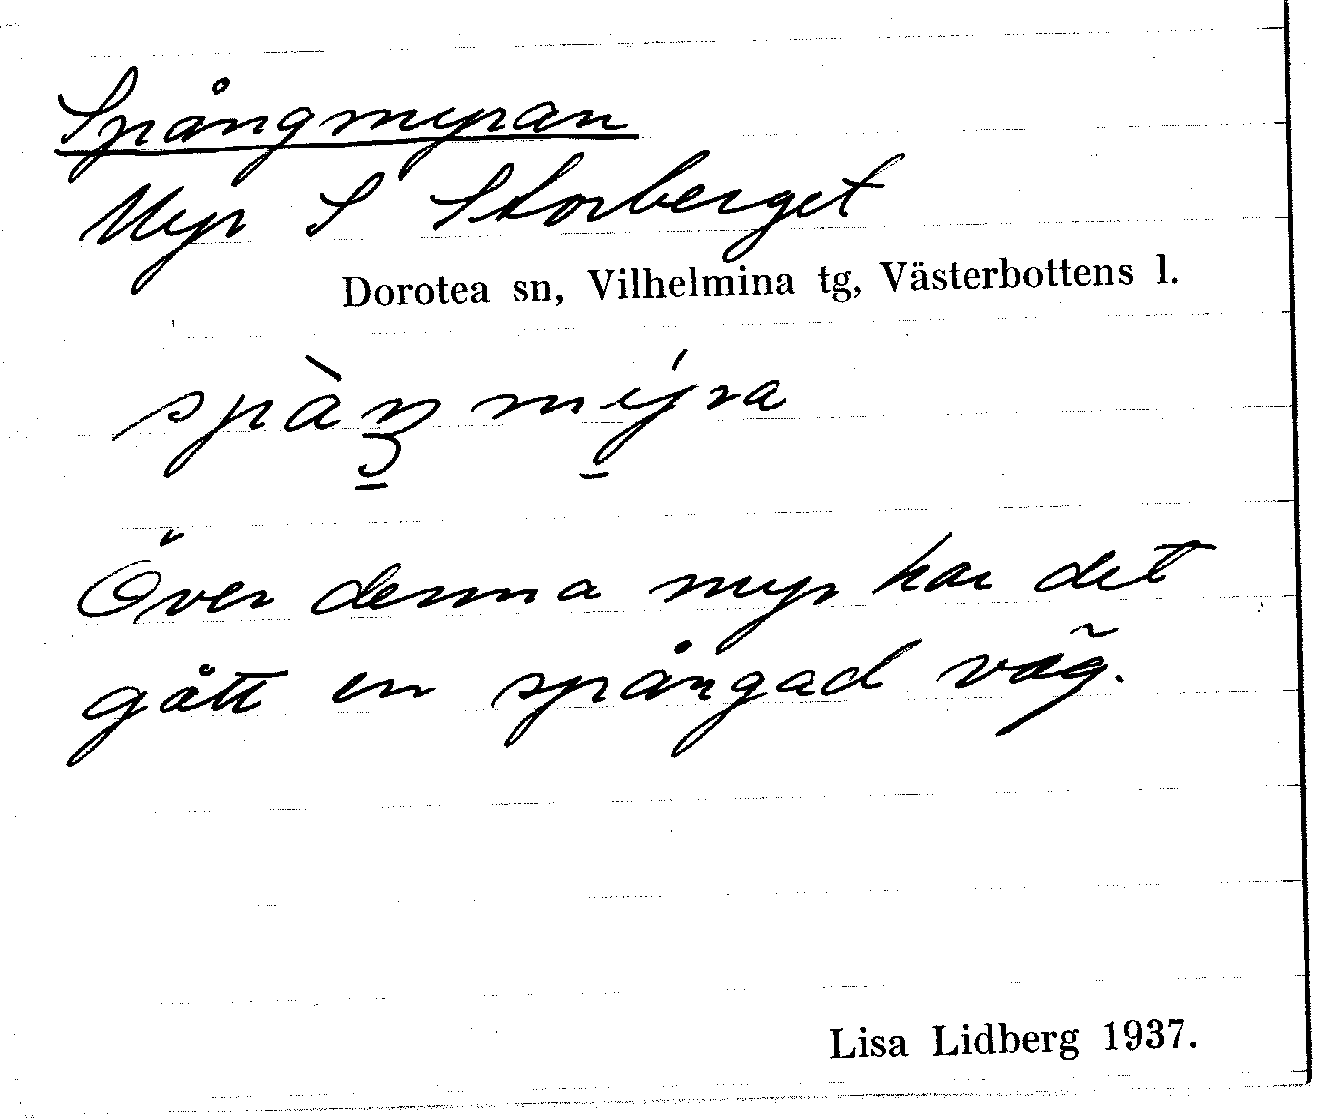 Spångmyran
Myr S Storberget
Dorotea sn, Vilhelmina tg, Västerbottens l.
spàŋ mýra
Över denna myr har det
gått en spångad väg.
Lisa Lidberg 1937.